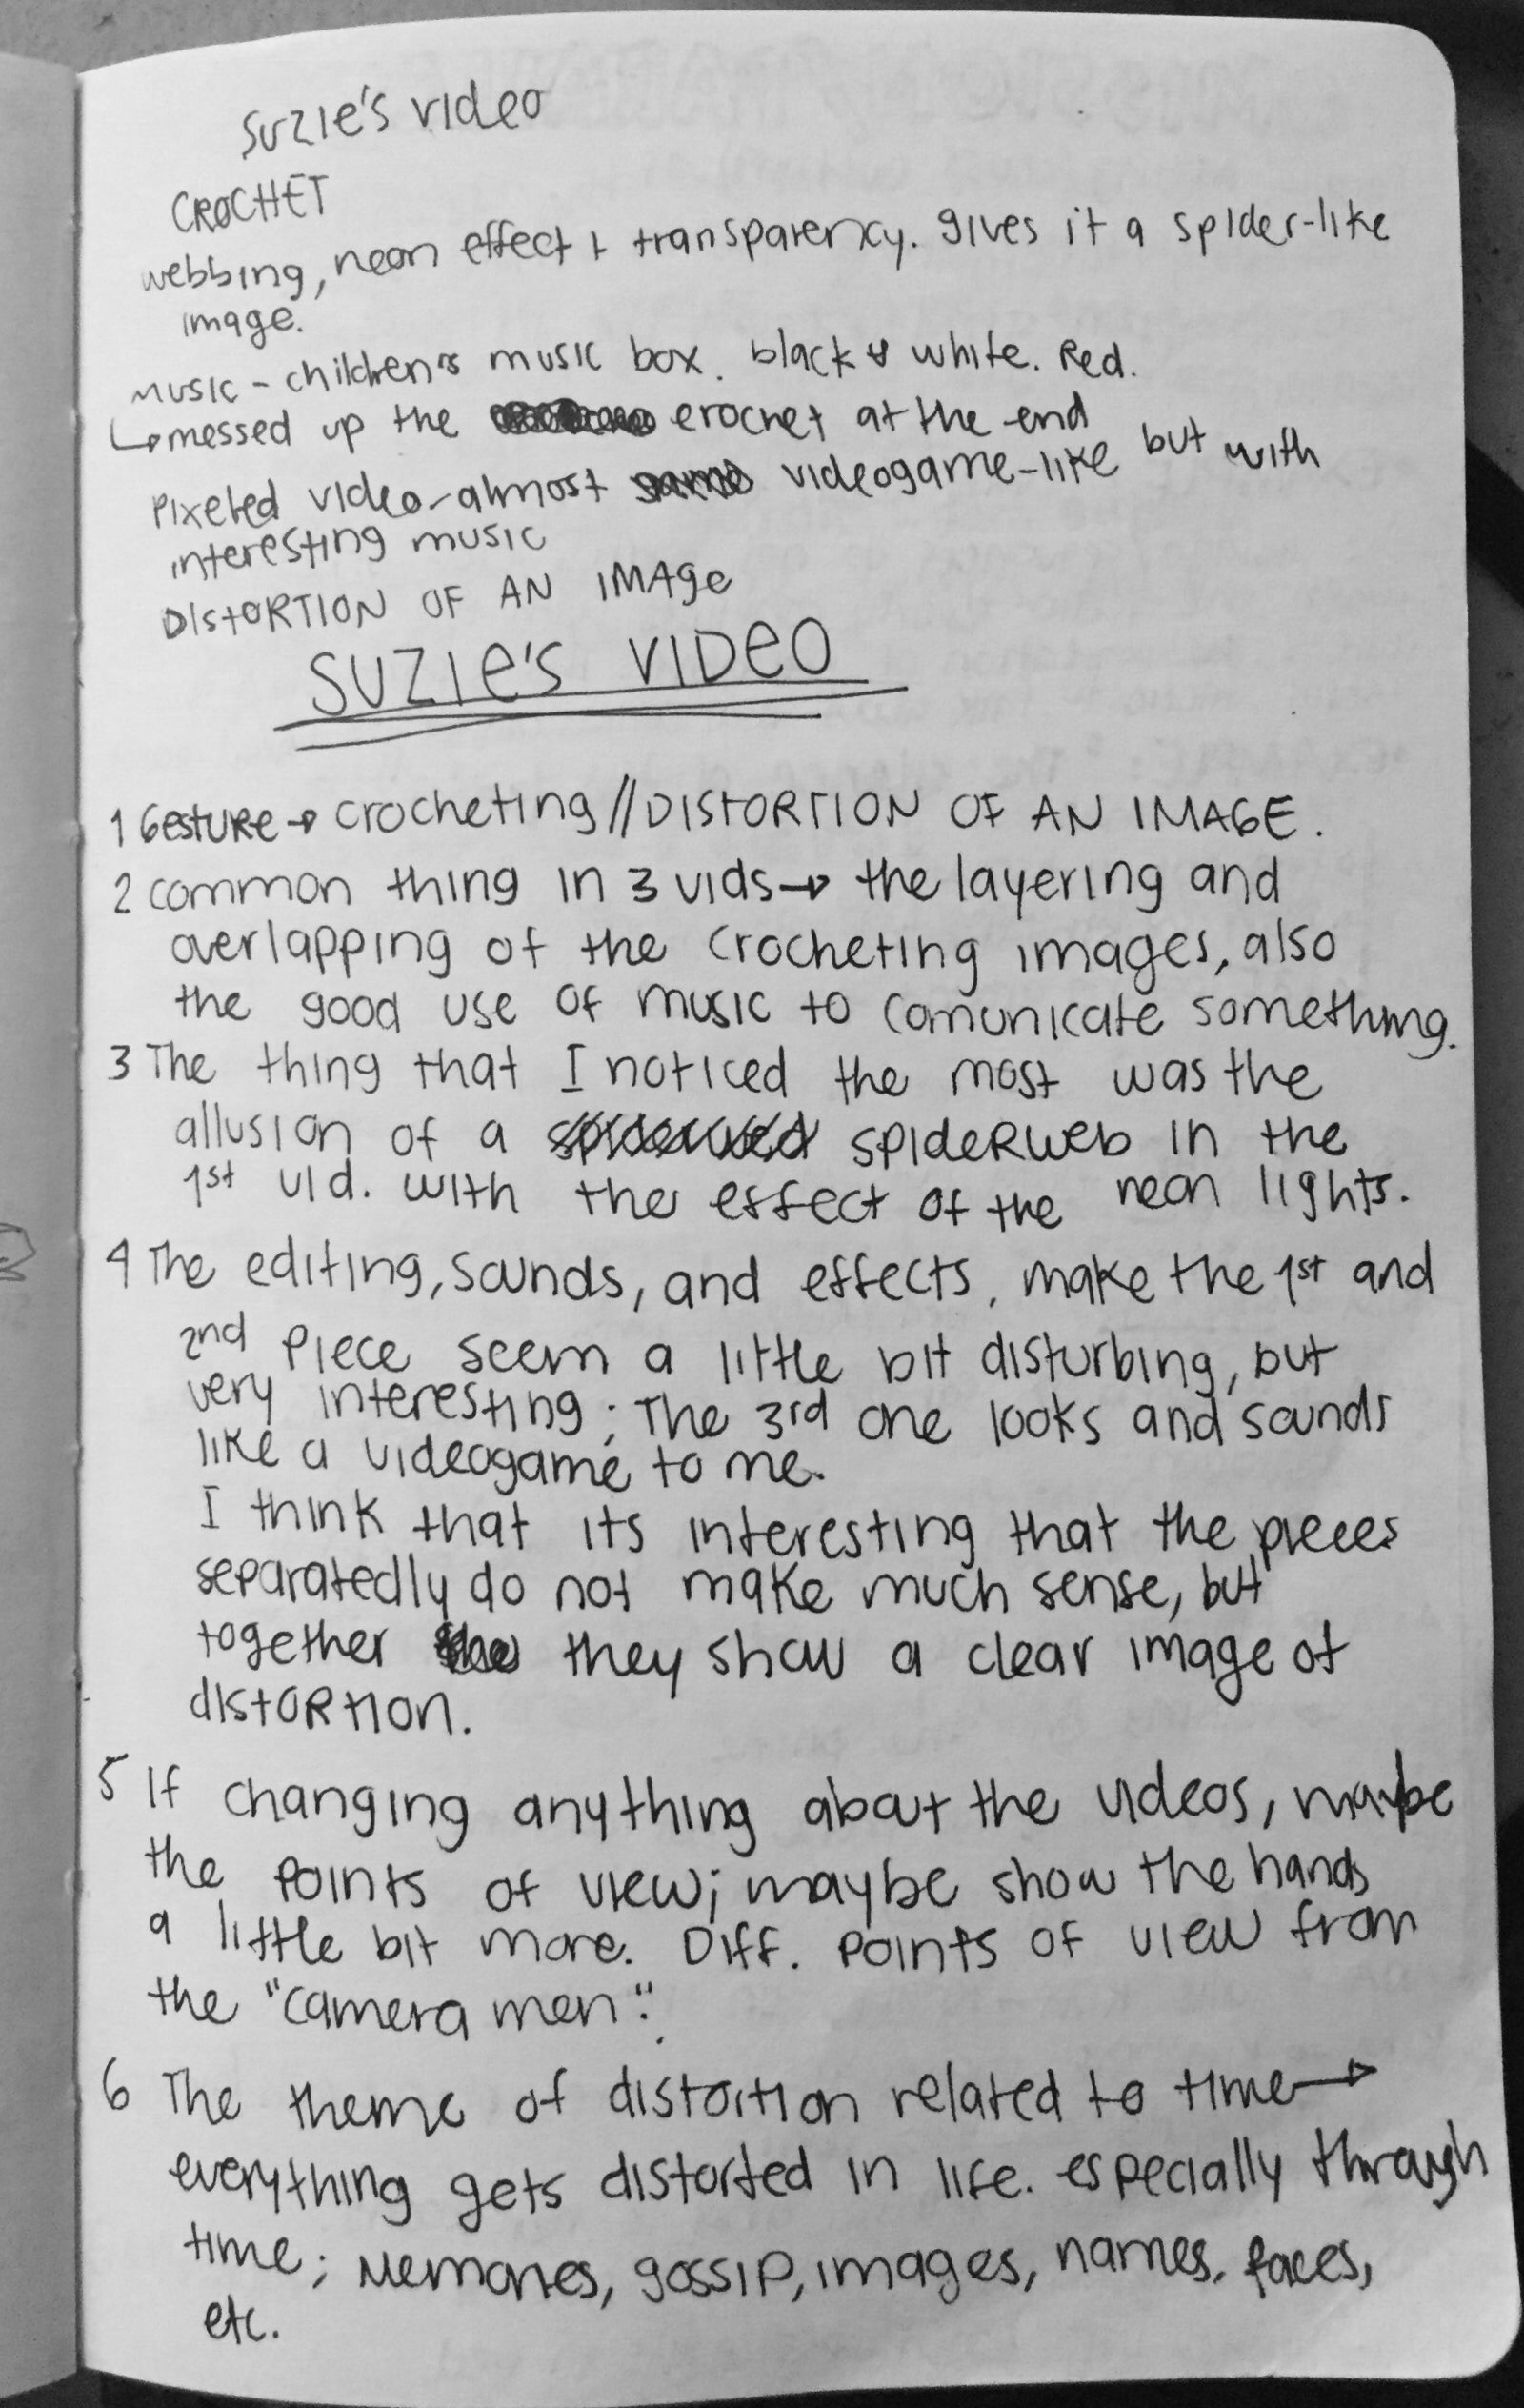 Suzie's video
CROCHET
webbing, neon effect + transparency. gives it a spider-like
image.
music - children's music box. black & white. Red.
↳ messed up the crochet at the end
Pixeled video - almost videogame-like but with
interesting music
DISTORTION OF AN IMAGE
SUZIE'S VIDEO
1 Gesture → crocheting // DISTORTION OF AN IMAGE.
2 common thing in 3 vids → the layering and
overlapping of the crocheting images, also
the good use of music to comunicate something.
3 The thing that I noticed the most was the
allusion of a spiderweb in the
1st vid. with the effect of the neon lights.
4 The editing, sounds, and effects, make the 1st and
2nd piece seem a little bit disturbing, but
very interesting; The 3rd one looks and sounds
like a videogame to me.
I think that its interesting that the pieces
separatedly do not make much sense, but
together they show a clear image of
distortion.
5 If changing anything about the videos, maybe
the points of view; maybe show the hands
a little bit more. Diff. points of view from
the "camera men".
6 The theme of distortion related to time →
everything gets distorted in life. especially through
time; Memories, gossip, images, names, faces,
etc.